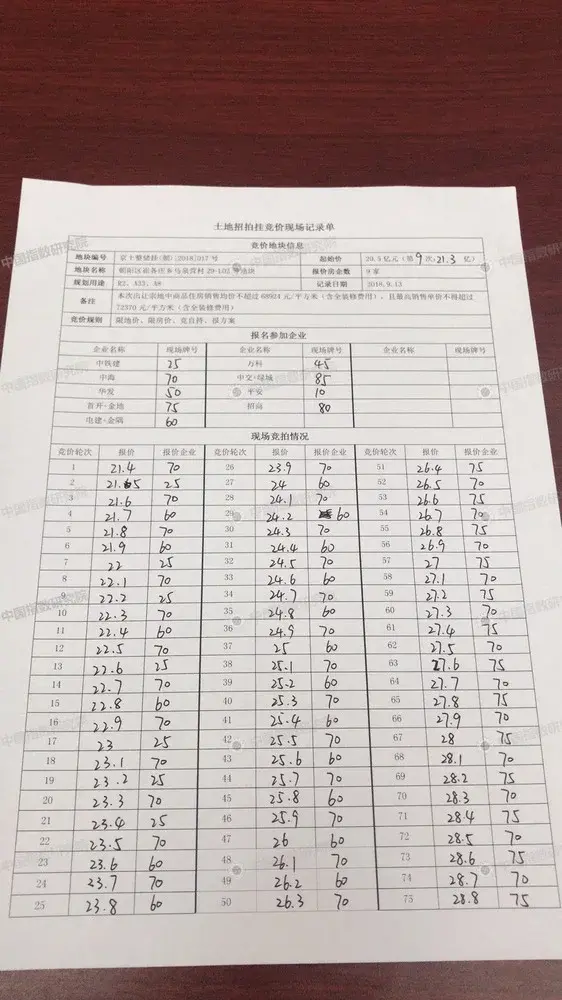 土地招拍挂竞价现场记录单
竞价地块信息
地块编号 京土整储挂(朝)[2018]017号 起始价 20.5亿元(第9次:21.3亿)
地块名称 朝阳区崔各庄乡马泉营村29-L03等地块 报价房企数 9家
规划用途 R2、A33、A8 记录日期 2018.9.13
备注 本次出让宗地中商品住房销售均价不超过68924元/平方米(含全装修费用),且最高销售单价不得超过
72370元/平方米(含全装修费用)
竞价规则 限地价、限房价、竞自持、报方案
报名参加企业
企业名称 现场牌号 企业名称 现场牌号 企业名称 现场牌号
中铁建 25 万科 45
中海 70 中交·绿城 85
华发 50 平安 10
首开·金地 75 招商 80
电建·金隅 60
现场竞拍情况
竞价轮次 报价 报价企业 竞价轮次 报价 报价企业 竞价轮次 报价 报价企业
1 21.4 70 26 23.9 70 51 26.4 75
2 21.5 25 27 24 60 52 26.5 70
3 21.6 70 28 24.1 70 53 26.6 75
4 21.7 60 29 24.2 60 54 26.7 70
5 21.8 70 30 24.3 70 55 26.8 75
6 21.9 60 31 24.4 60 56 26.9 70
7 22 25 32 24.5 70 57 27 75
8 22.1 70 33 24.6 60 58 27.1 70
9 22.2 25 34 24.7 70 59 27.2 75
10 22.3 70 35 24.8 60 60 27.3 70
11 22.4 60 36 24.9 70 61 27.4 75
12 22.5 70 37 25 60 62 27.5 70
13 22.6 25 38 25.1 70 63 27.6 75
14 22.7 70 39 25.2 60 64 27.7 70
15 22.8 60 40 25.3 70 65 27.8 75
16 22.9 70 41 25.4 60 66 27.9 70
17 23 25 42 25.5 70 67 28 75
18 23.1 70 43 25.6 60 68 28.1 70
19 23.2 25 44 25.7 70 69 28.2 75
20 23.3 70 45 25.8 60 70 28.3 70
21 23.4 25 46 25.9 70 71 28.4 75
22 23.5 70 47 26 60 72 28.5 70
23 23.6 60 48 26.1 70 73 28.6 75
24 23.7 70 49 26.2 60 74 28.7 70
25 23.8 60 50 26.3 70 75 28.8 75
中国指数研究院